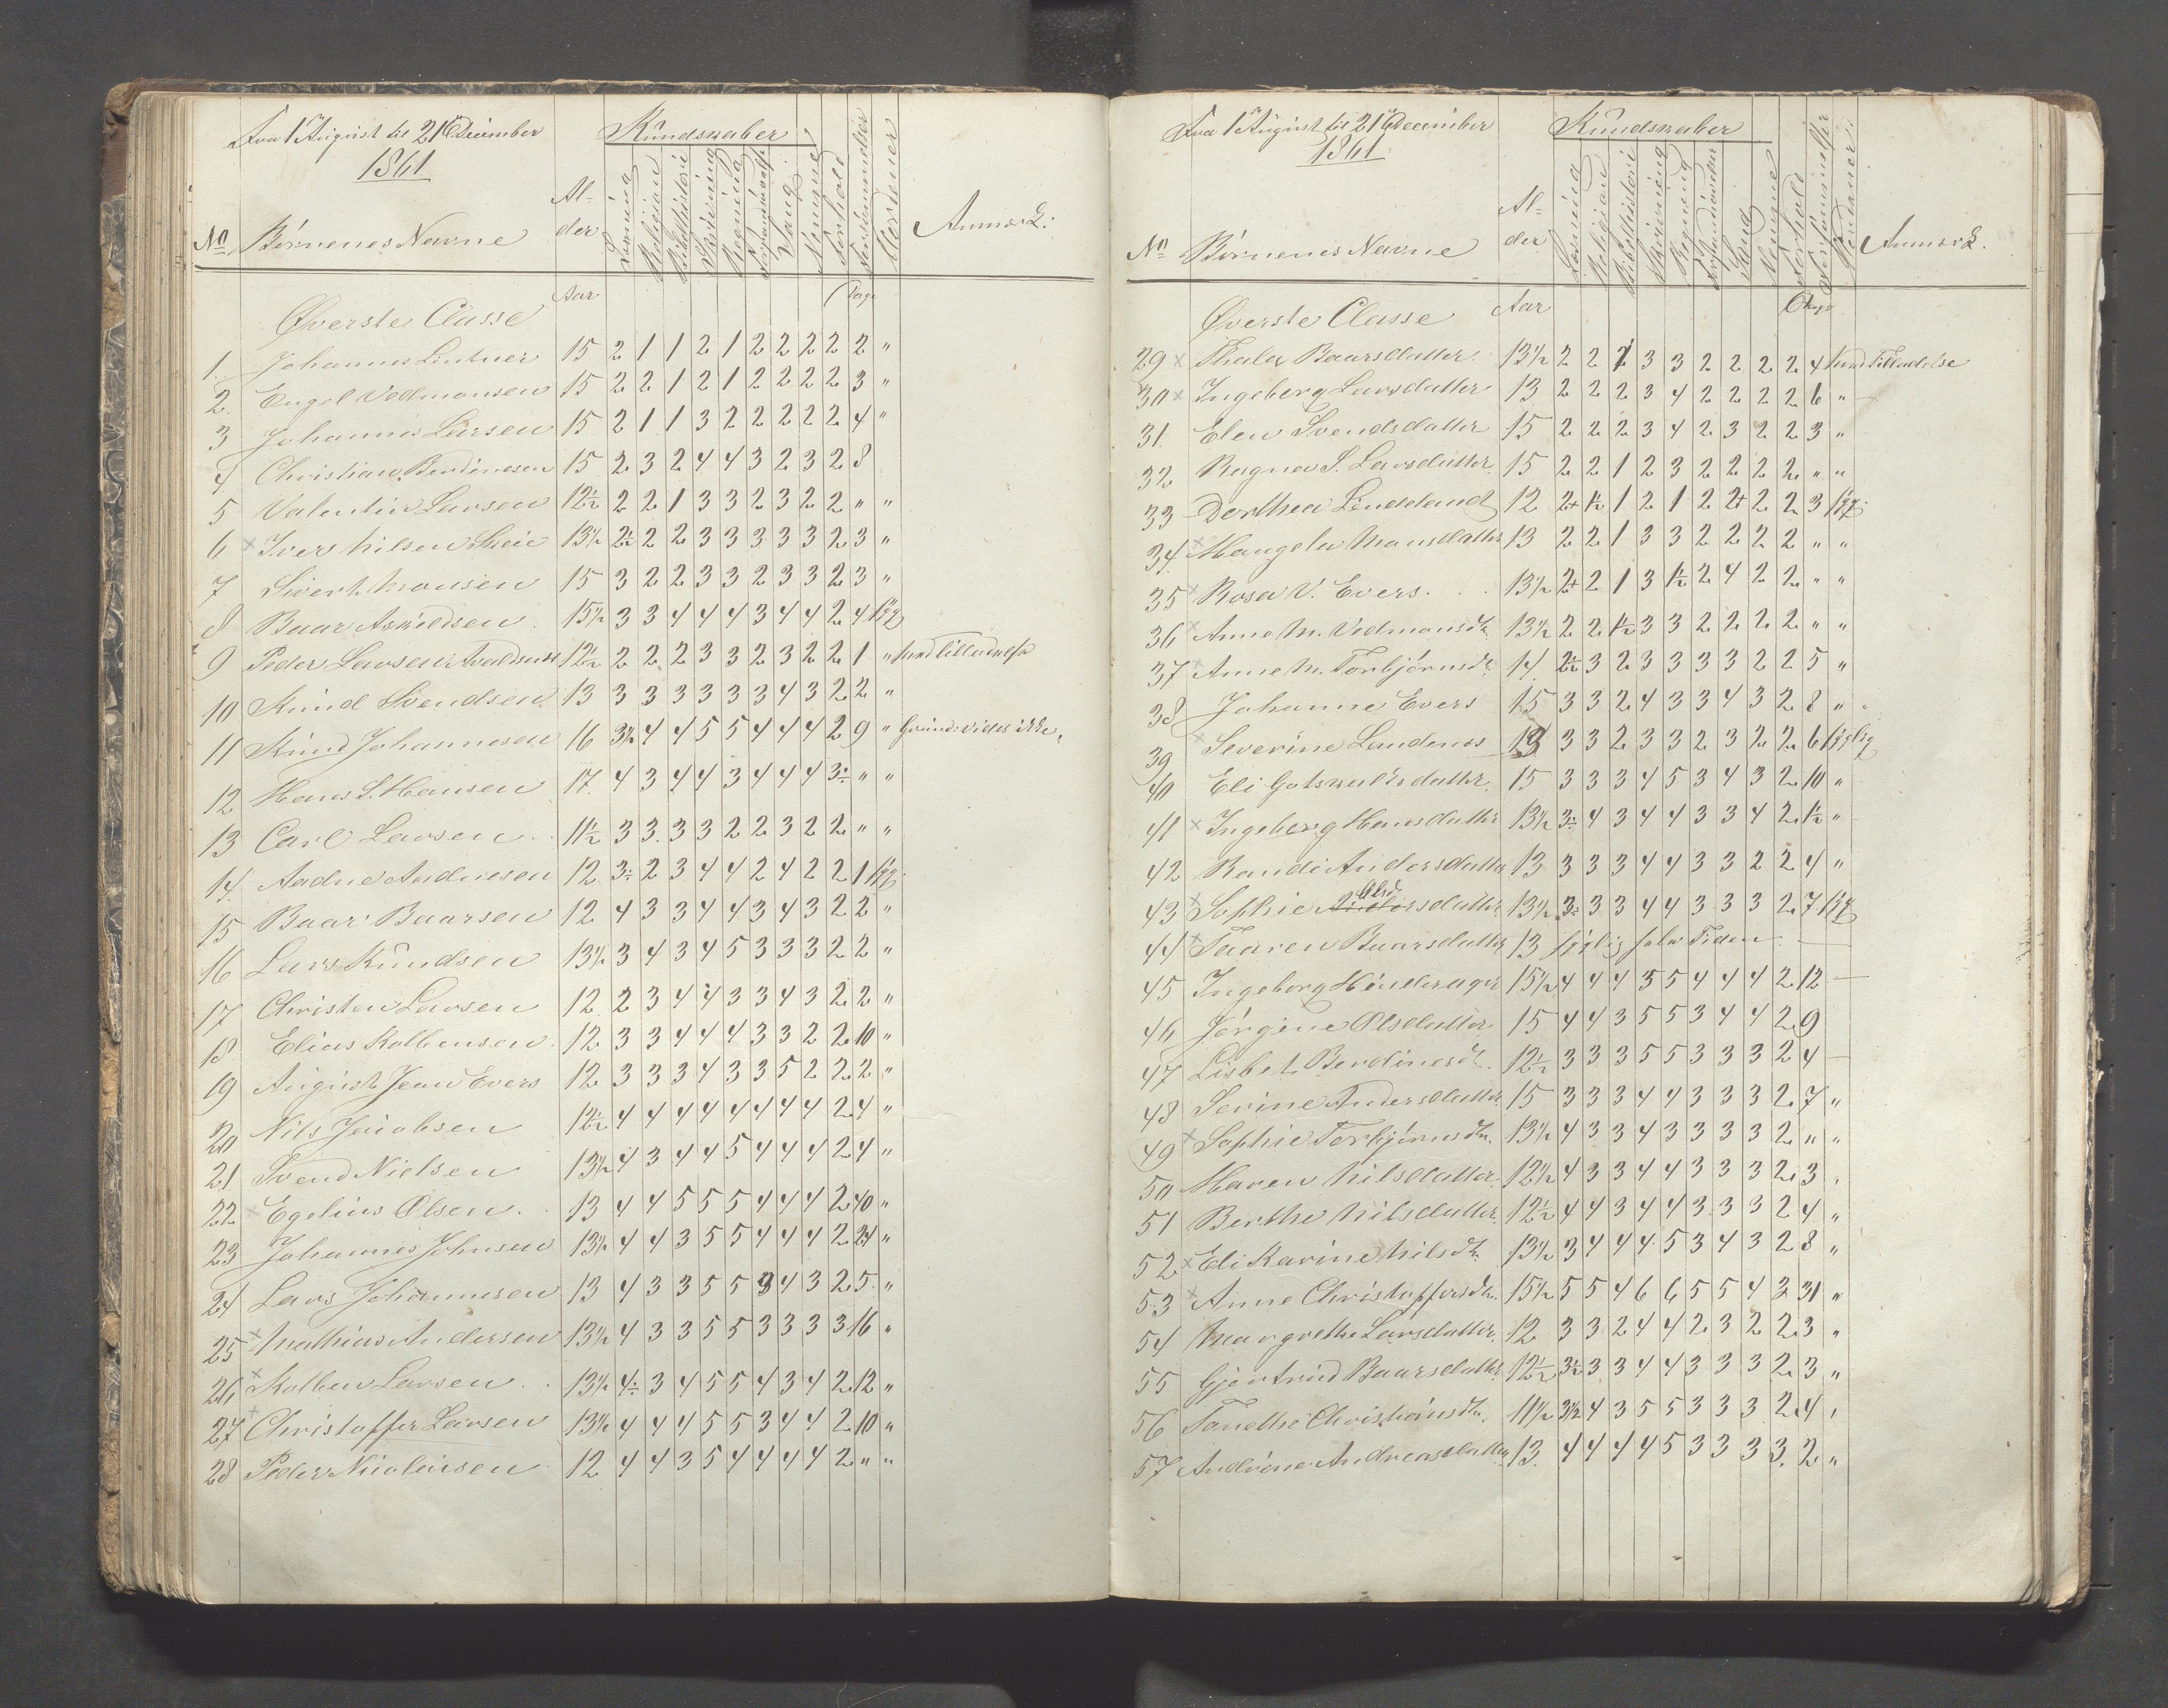 Fra 1 August til 21 December
1861
Kundskaber
No Børnenes Navne Alder Læsning Religion Bibelhistorie Skrivning Regning Forstandsøvelse Sang Nemme Forhold Forsømmelser Anmærk:
Aar Dage
Øverste Classe
1 Johannes Lintner 15 2 1 1 2 1 2 2 2 2 2 "
2 Engel Vedmonsen 15 2 2 1 2 1 2 2 2 2 3 "
3 Johannes Larsen 15 2 1 1 3 2 2 2 2 2 4 "
4 Christian Berdinesen 15 2 3 2 4 4 3 2 3 2 8
5 Valentin Larsen 12½ 2 2 1 3 3 2 3 2 2 " "
6 × Iver Nilsen Skeie 13½ 2½ 2 2 3 3 3 3 3 2 3 "
7 Sivert Monsen 15 3 2 2 3 3 2 3 3 2 3 "
8 Baar Askildsen 15½ 3 3 4 4 4 3 4 4 2 4 syg
9 Peder Larsen 12½ 2 2 2 3 3 2 3 2 2 1 " med Tilladelse
10 Knud Svendsen 13 3 3 3 3 3 3 4 3 2 2 "
11 Knud Johannesen 16 3½ 4 4 5 5 4 4 4 2 9 " Grund: vides ikke.
12 Hans S. Hansen 17 4 3 4 4 3 4 4 4 3÷ " "
13 Carl Larsen 11½ 3 3 3 3 2 2 3 2 2 " "
14 Aadne Aadnesen 12 3÷ 2 3 4 4 2 4 2 2 1 syg
15 Baar Baarsen 12 4 3 3 4 4 3 4 3 2 2 "
16 Lars Knudsen 13½ 3 4 3 4 5 3 3 3 2 2 "
17 Christen Larsen 12 2 3 4 4 3 3 4 3 2 2 "
18 Elias Kolbensen 12 3 3 4 4 4 3 3 2 2 10 "
19 August Jean Evers 12 3 3 3 4 3 3 5 2 2 2 "
20 Nils Jacobsen 12½ 4 4 4 4 4 4 4 4 2 4 "
21 Svend Nielsen 13½ 4 3 4 4 5 4 4 4 2 4 "
22 × Egelius Olsen 13 4 4 5 5 5 4 4 4 2 40 "
23 Johannes Johnsen 13½ 4 4 3 5 5 4 4 4 2 24 "
24 Lars Johannesen 13 4 3 3 5 5 3 4 3 2 5 "
25 × Mathias Andersen 13½ 4 3 3 5 5 3 3 3 3 16 "
26 × Kolben Larsen 13½ 4÷ 3 4 5 5 4 3 4 2 12 "
27 × Christoffer Larsen 13½ 4 4 4 5 5 3 4 4 2 10 "
28 Peder Nicolaisen 12 4 4 3 5 4 4 4 4 2 " "
Fra 1 August til 21 December
1861
Kundskaber
No Børnenes Navne Alder Læsning Religion Bibelhistorie Skrivning Regning Forstandsøvelser Sang Nemme Forhold Forsømmelser Anmærk.
Aar Dage
Øverste Classe
29 × Thala Baarsdatter 13½ 2 2 2 3 3 2 2 2 2 4 med Tilladelse
30 × Ingeborg Larsdatter 13 2 2 2 3 4 2 2 2 2 6 "
31 Elen Svendsdatter 15 2 2 2 3 4 2 3 2 2 3 "
32 Ragna S. Larsdatter 15 2 2 1 2 3 2 2 2 2 " "
33 Dorthea Lindeland 12 2+ 1½ 1 2 1 2 2+ 2 2 3 syg.
34 × Mangela Monsdatter 13 2 2 1 3 3 2 2 2 2 " "
35 × Rosa V. Evers 13½ 2+ 2 1 3 1½ 2 4 2 2 " "
36 × Anne M. Vedmonsdtr 13½ 2 2 1½ 3 3 2 2 2 2 " "
37 Anne M. Torbjørnsdtr 14 2½ 3 2 3 3 3 3 2 2 5 "
38 Johanne Evers 15 3 3 2 4 3 3 4 3 2 8 "
39 × Severine Landenes 13 3 3 2 3 3 2 3 2 2 6 syglig
40 Eli Gotskalksdatter 15 3 3 3 4 5 3 4 3 2 10 "
41 × Ingeborg Hansdatter 13½ 3÷ 4 3 4 4 3 3 4 2 1½ "
42 Randi Andersdatter 13 3 3 3 4 4 3 3 2 2 4 "
43 × Sophie Olsdatter 13½ 3÷ 3 3 4 4 3 3 3 2 7 syg
44 × Taaren Baarsdatter 13 syglig hele Tiden
45 Ingeborg Hinderager 15½ 4 4 4 5 5 4 4 4 2 12
46 Jørgine Olsdatter 15 4 4 3 5 5 3 4 4 2 9
47 Lisbet Berdinesdtr 12½ 3 3 3 5 5 3 3 3 2 4
48 Serine Andersdatter 15 3 3 3 4 4 3 3 3 2 7 "
49 × Sophie Torbjørnsdtr. 13½ 4 3 3 4 3 3 3 3 2 " "
50 Maren Nilsdatter 12½ 4 3 3 4 4 3 3 3 2 3
51 Berthe Nilsdatter 12½ 4 4 3 4 4 3 3 3 2 4 "
52 × Eli Karine Nilsdtr. 13½ 3 4 4 4 5 3 4 3 2 8 "
53 × Anne Christoffersdtr. 15½ 5 5 4 6 6 5 5 4 3 31 "
54 Margrethe Larsdatter 12 3 3 2 4 4 2 3 2 2 3 "
55 Gjertrud Baarsdatter 12½ 3½ 3 3 4 4 3 3 3 2 3 "
56 Tanethe Christiansdtr. 11½ 3½ 4 3 5 5 3 3 3 2 4
57 Andrine Andreasdatter 13 4 4 4 4 5 3 3 3 3 2 "